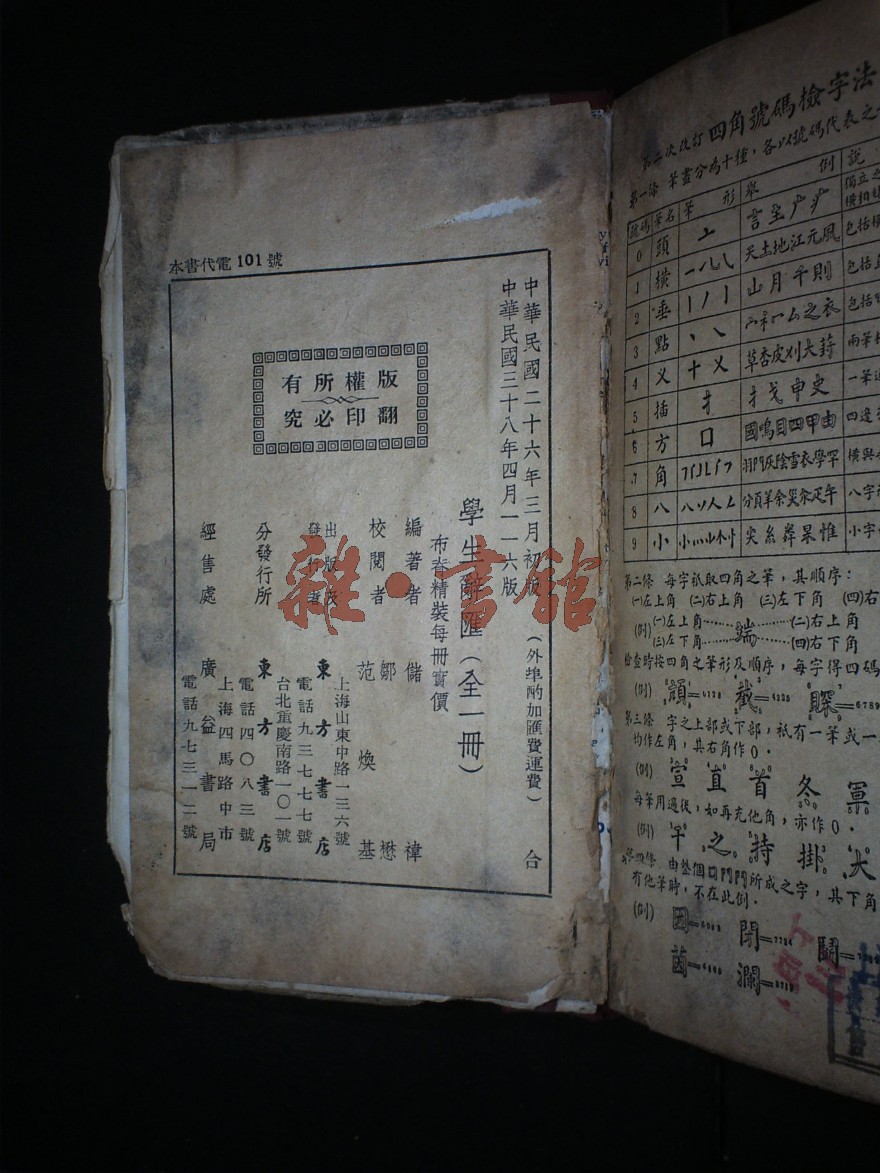 本書代電 101 號
版權所有
翻印必究
中華民國二十六年三月初版
中華民國三十八年四月一一六版
(外埠酌加匯費運費)
學生辭匯(全一冊)
布脊精裝每冊實價
編著者 儲禕
校閱者 鄒懋 范煥基
東方書店
上海山東中路一三六號
電話九三七七七號
台北重慶南路一〇一號
分發行所 東方書店
電話四〇八三號
經售處 廣益書局
上海四馬路中市
電話九七三一二號
雜·書館
第二次改訂 四角號碼檢字法
第一條 筆畫分為十種,各以號碼代表之
號碼 筆名 筆形 舉例 說
0 頭 亠 言主广疒 獨立之
1 橫 天土地江元風 包括橫
2 垂 山月千則 包括
3 點 包括
4 叉 十乂 草杏皮刈大葑 兩筆
5 插 扌 扌戈申史 一筆
6 方 口 國鳴目四甲由 四邊
7 角 橫與
8 八 八字
9 小 尖糸粦杲惟 小字
第二條 每字祇取四角之筆,其順序:
(一)左上角 (二)右上角 (三)左下角 (四)右
(例) (一)左上角 端 (二)右上角
(三)左下角 (四)右下角
檢查時按四角之筆形及順序,每字得四碼
(例) 顏 截
第三條 字之上部或下部,祇有一筆或一
均作左角,其右角作0.
(例) 宣 直 首 冬
每筆用過後,如再充他角,亦作0.
(例) 干 之 持 掛 犬
第四條 由整個口門鬥所成之字,其下角
有他筆時,不在此例.
(例) 因 閉 鬭
茵 瀾